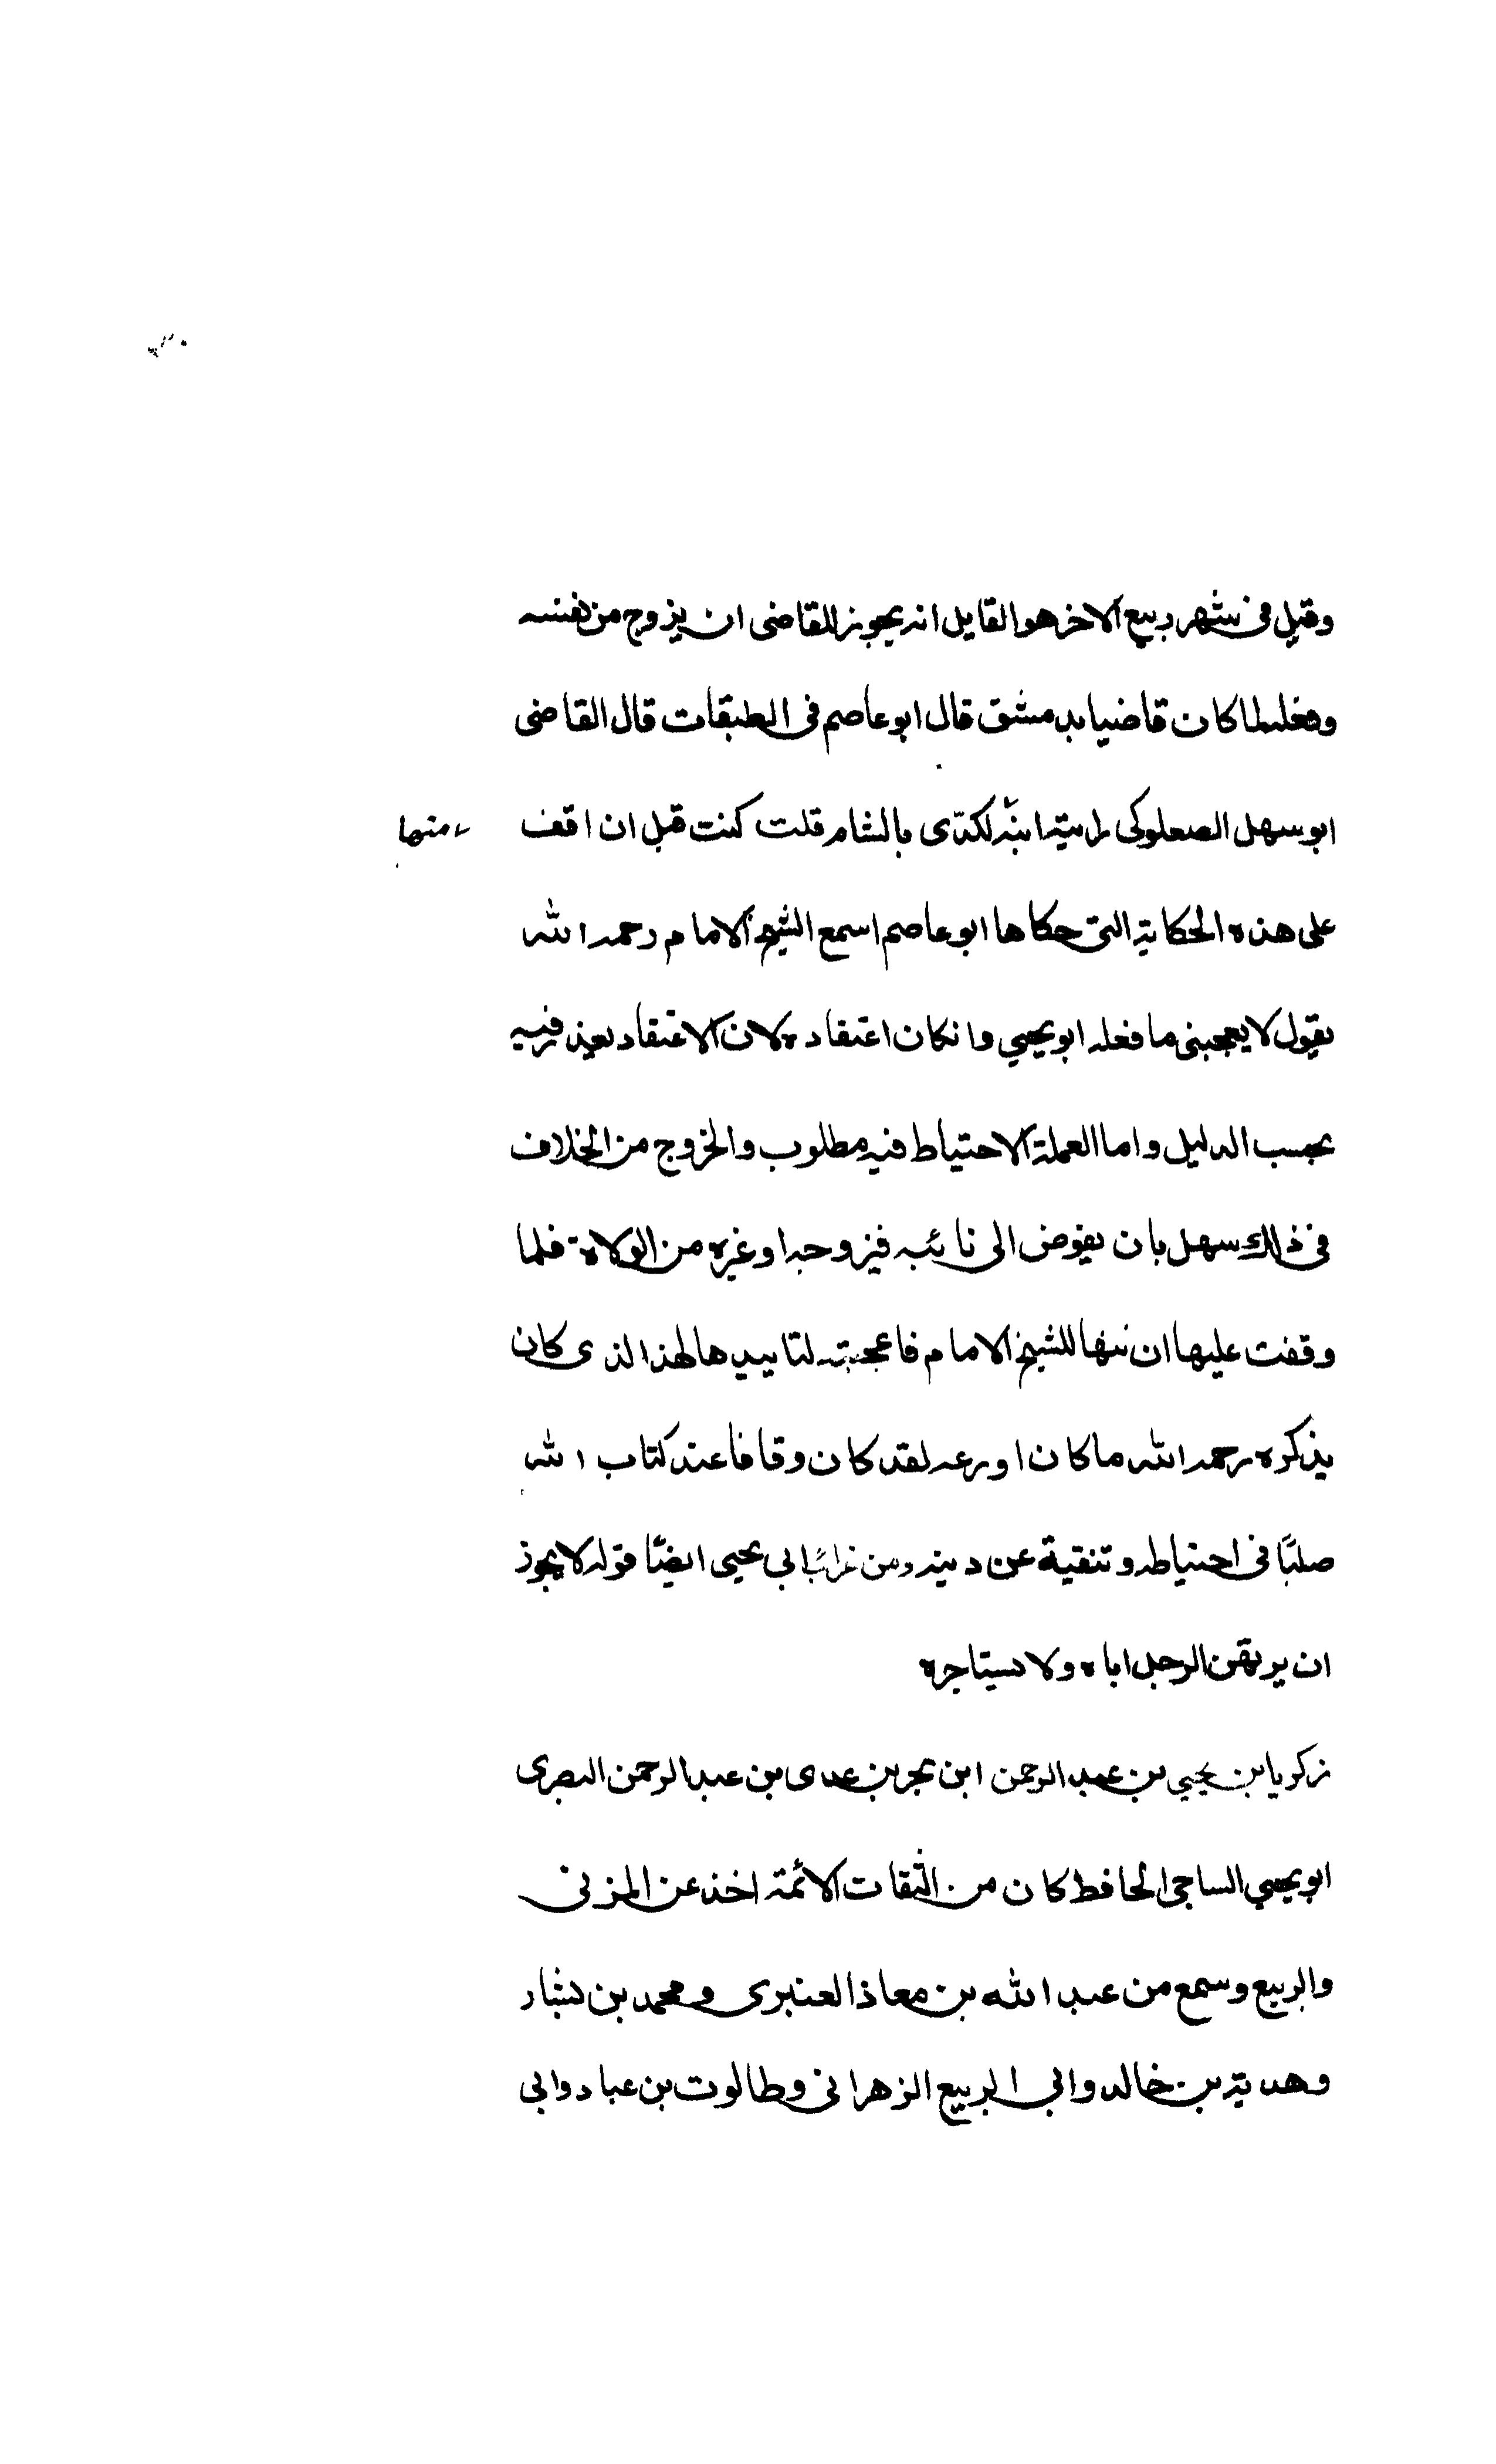 وقيل فى شهر ربيع الاخر هو القايل انه يجوز للقاضى ان يزوج من نفسه
وفعله لما كان قاضيا بدمشق قال ابو عاصم فى الطبقات قال القاضى
ابو سهل الصعلوكى رايته ابنه لكدى بالشام قلت كنت قبل ان اقف
منها
على هذه الحكاية التى حكاها ابو عاصم اسمع الشيخ الامام رحمه الله
يقول لا يعجبنى ما فعله ابو يحيى وانكان اعتقاده لان الاعتقاد يعيذ فيه
بحسب الدليل واما العمل الاحتياط فيه مطلوب والخروج من الخلاف
فى ذلك سهل بان يفوض الى نائبه فيزوجه او غيره من الولاة فلما
وقفت عليها للشيخ الامام فاعجبته لتاييدها لهذا الذى كان
يذكره رحمه الله ما كان اورعه لقد كان وقافا عند كتاب الله
صلبًا فى احتياطه وتنقية عن دينه ومن غرائب ابى يحيى ايضًا قوله لا يجوز
ان يرتهن الرجل اباه ولا يستاجره
زكريا بن يحيى بن عبد الرحمن ابن بحر بن عدى بن عبد الرحمن البصرى
ابو يحيى الساجى الحافظ كان من الثقات الائمة اخذ عن المزنى
والربيع وسمع من عبد الله بن معاذ العنبرى ومحمد بن بشار
وهدية بن خالد وابى الربيع الزهرانى وطالوت بن عباد وابى